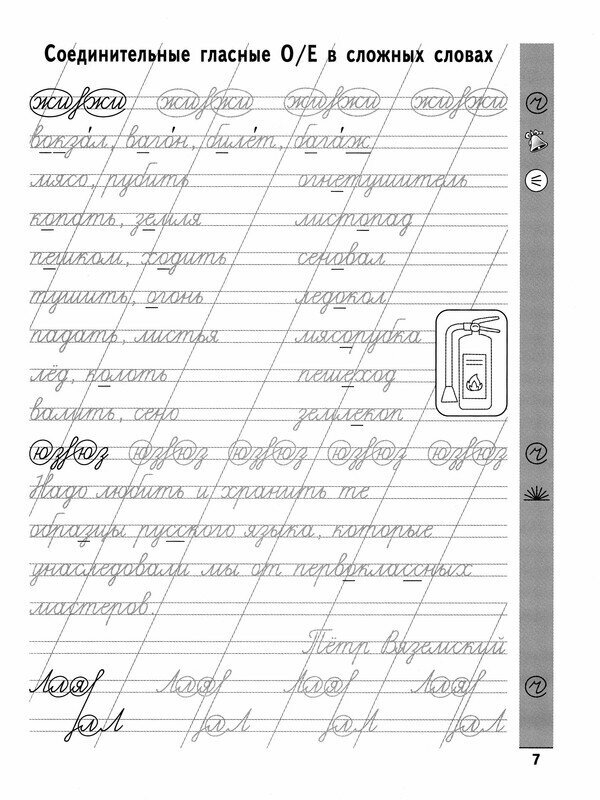 Соединительные гласные О/Е в сложных словах
жи жи жи жи жи жи жи жи
вокза́л, ваго́н, биле́т, бага́ж
мясо, рубить огнетушитель
копать, земля листопад
пешком, ходить сеновал
тушить, огонь ледокол
падать, листья мясорубка
лёд, колоть пешеход
валить, сено землекоп
юз юз юз юз юз юз юз юз юз юз
Надо любить и хранить те
образцы русского языка, которые
унаследовали мы от первоклассных
мастеров.
Пётр Вяземский
7